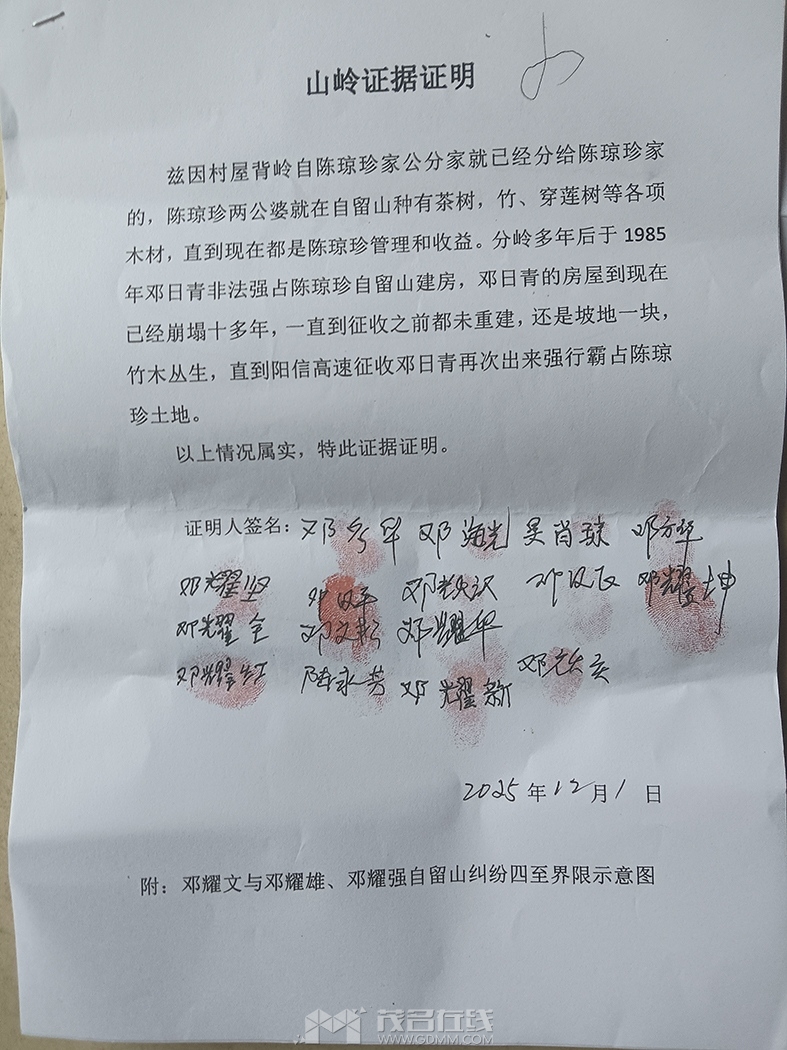 山岭证据证明
兹因村屋背岭自陈琼珍家公分家就已经分给陈琼珍家
的，陈琼珍两公婆就在自留山种有茶树，竹、穿莲树等各项
木材，直到现在都是陈琼珍管理和收益。分岭多年后于 1985
年邓日青非法强占陈琼珍自留山建房，邓日青的房屋到现在
已经崩塌十多年，一直到征收之前都未重建，还是坡地一块，
竹木丛生，直到阳信高速征收邓日青再次出来强行霸占陈琼
珍土地。
以上情况属实，特此证据证明。
证明人签名：邓 华 邓海光 吴肖琼 邓方华
邓耀 邓 邓 邓 邓耀坤
邓耀全 邓文彬 邓耀华
邓耀红 陆永芳 邓耀新 邓
2025 年 12 月 1 日
附：邓耀文与邓耀雄、邓耀强自留山纠纷四至界限示意图
茂名在线
WWW.GDMM.COM